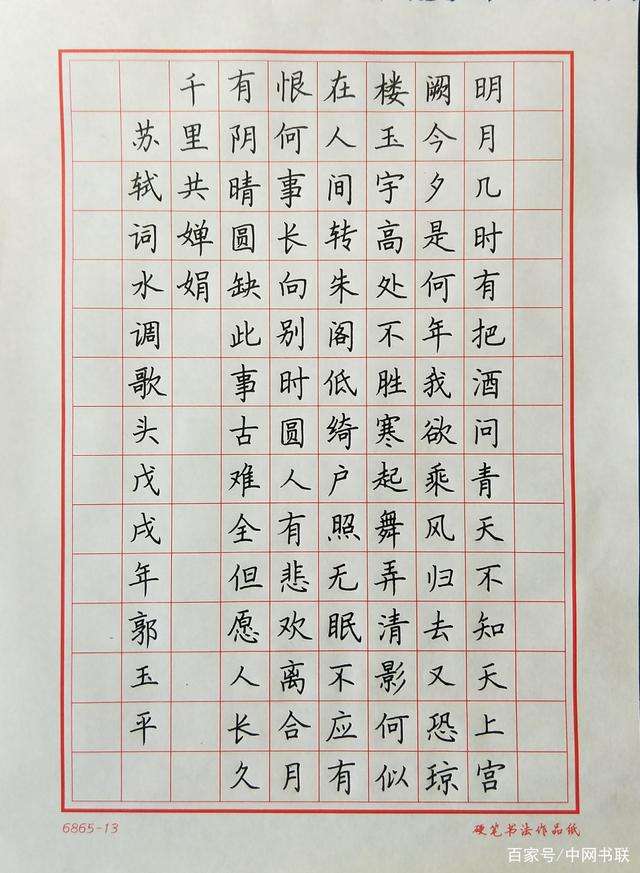 明月几时有把酒问青天不知天上宫
阙今夕是何年我欲乘风归去又恐琼
楼玉宇高处不胜寒起舞弄清影何似
在人间转朱阁低绮户照无眠不应有
恨何事长向别时圆人有悲欢离合月
有阴晴圆缺此事古难全但愿人长久
千里共婵娟
苏轼词水调歌头戊戌年郭玉平
6865-13
硬笔书法作品纸
百家号/中网书联